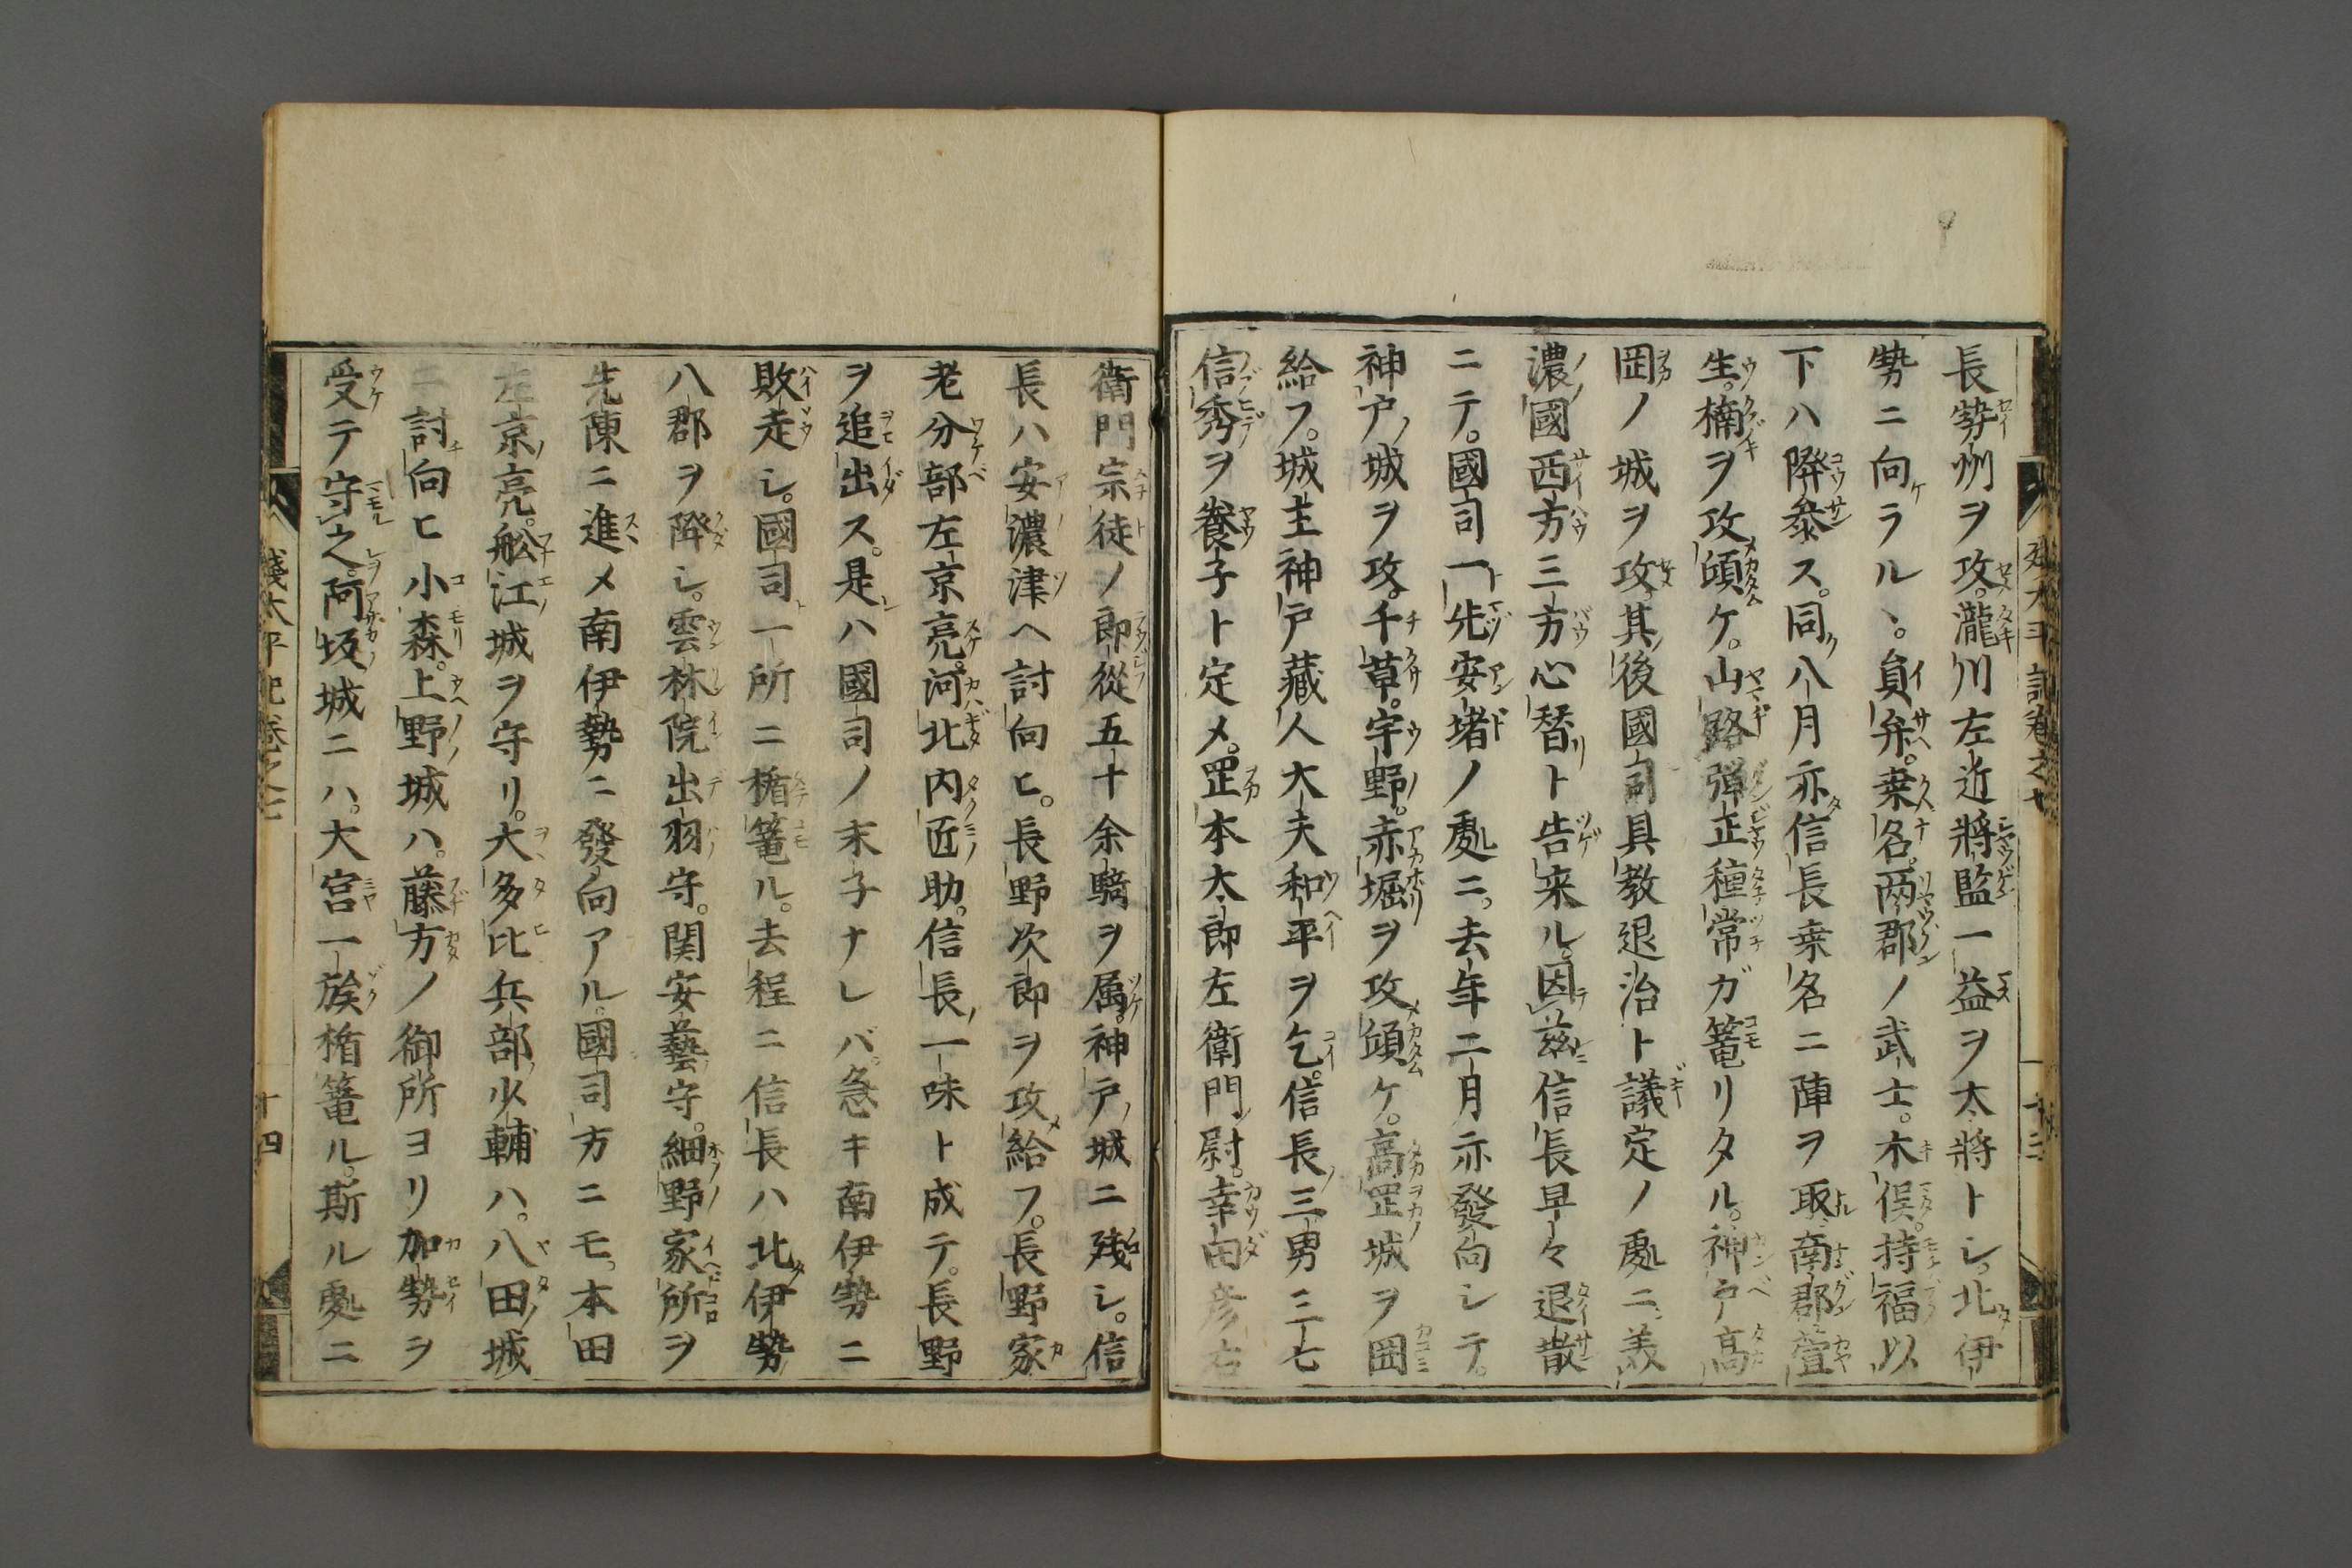 長勢州ヲ攻。瀧川左近將監一益ヲ大將トシ。北伊
勢ニ向ラル丶。員弁。桒名。兩郡ノ武士。木俣。持福以
下ハ降叅ス。同八月亦信長桒名ニ陣ヲ取。南郡萱
生。楠ヲ攻傾ケ。山路彈正種常ガ篭リタル。神戸高
岡ノ城ヲ攻。其後國司具教退治ト議定ノ處ニ。美
濃國西方三方心替ト告来ル。因茲信長早々退散
ニテ。國司一先安堵ノ處ニ。去年二月亦發向シテ。
神戸城ヲ攻。千草。宇野。赤堀ヲ攻傾ケ。高罡城ヲ圍
給フ。城主神戸藏人大夫和平ヲ乞。信長三男三七
信秀ヲ養子ト定メ。罡本太郎左衛門尉。幸田彦右
衛門宗徒ノ郎從五十余騎ヲ属。神戸城ニ残シ。信
長ハ安濃津ヘ討向ヒ。長野次郎ヲ攻給フ。長野家
老分部左京亮。河北内匠助。信長一味ト成テ。長野
ヲ追出ス。是ハ國司ノ末子ナレバ。急キ南伊勢ニ
敗走シ。國司一所ニ楯篭ル。去程ニ信長ハ北伊勢
八郡ヲ降シ。雲林院出羽守。関安藝守。細野家所ヲ
先陳ニ進メ南伊勢ニ發向アル。國司方ニモ。本田
左京亮。舩江城ヲ守リ。大多比兵部少輔ハ。八田城
ニ討向ヒ小森。上野城ハ。藤方ノ御所ヨリ加勢ヲ
受テ守之。阿坂城ニハ。大宮一族楯篭ル。斯ル處ニ
十四